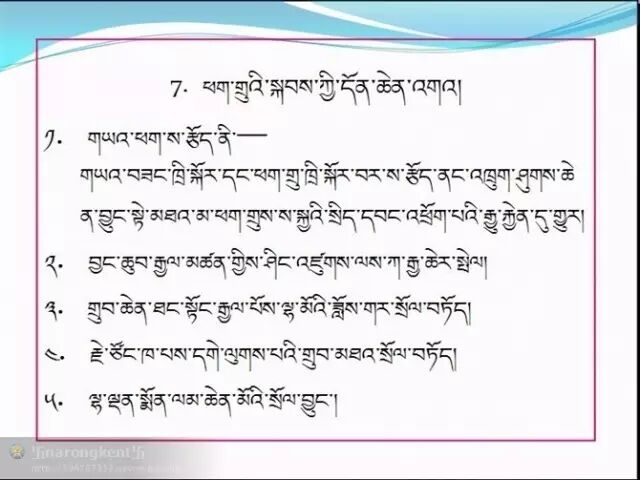 7. ཕག་གྲུའི་སྐབས་ཀྱི་དོན་ཆེན་འགའ།
༡. གཡའ་ཕག་ས་རྩོད་ནི་—
གཡའ་བཟང་ཁྲི་སྐོར་དང་ཕག་གྲུ་ཁྲི་སྐོར་བར་ས་རྩོད་ནང་འཁྲུག་ཤུགས་ཆེ
ན་བྱུང་སྟེ་མཐའ་མ་ཕག་གྲུས་ས་སྐྱའི་སྲིད་དབང་འཕྲོག་པའི་རྒྱུ་རྐྱེན་དུ་གྱུར།
༢. བྱང་ཆུབ་རྒྱལ་མཚན་གྱིས་ཤིང་འཛུགས་ལས་ཀ་རྒྱ་ཆེར་སྤེལ།
༣. གྲུབ་ཆེན་ཐང་སྟོང་རྒྱལ་པོས་ལྷ་མོའི་ཟློས་གར་སྲོལ་བཏོད།
༤. རྗེ་ཙོང་ཁ་པས་དགེ་ལུགས་པའི་གྲུབ་མཐའ་སྲོལ་བཏོད།
༥. ལྷ་ལྡན་སྨོན་ལམ་ཆེན་མོའི་སྲོལ་བྱུང་།
卐narongkent卐